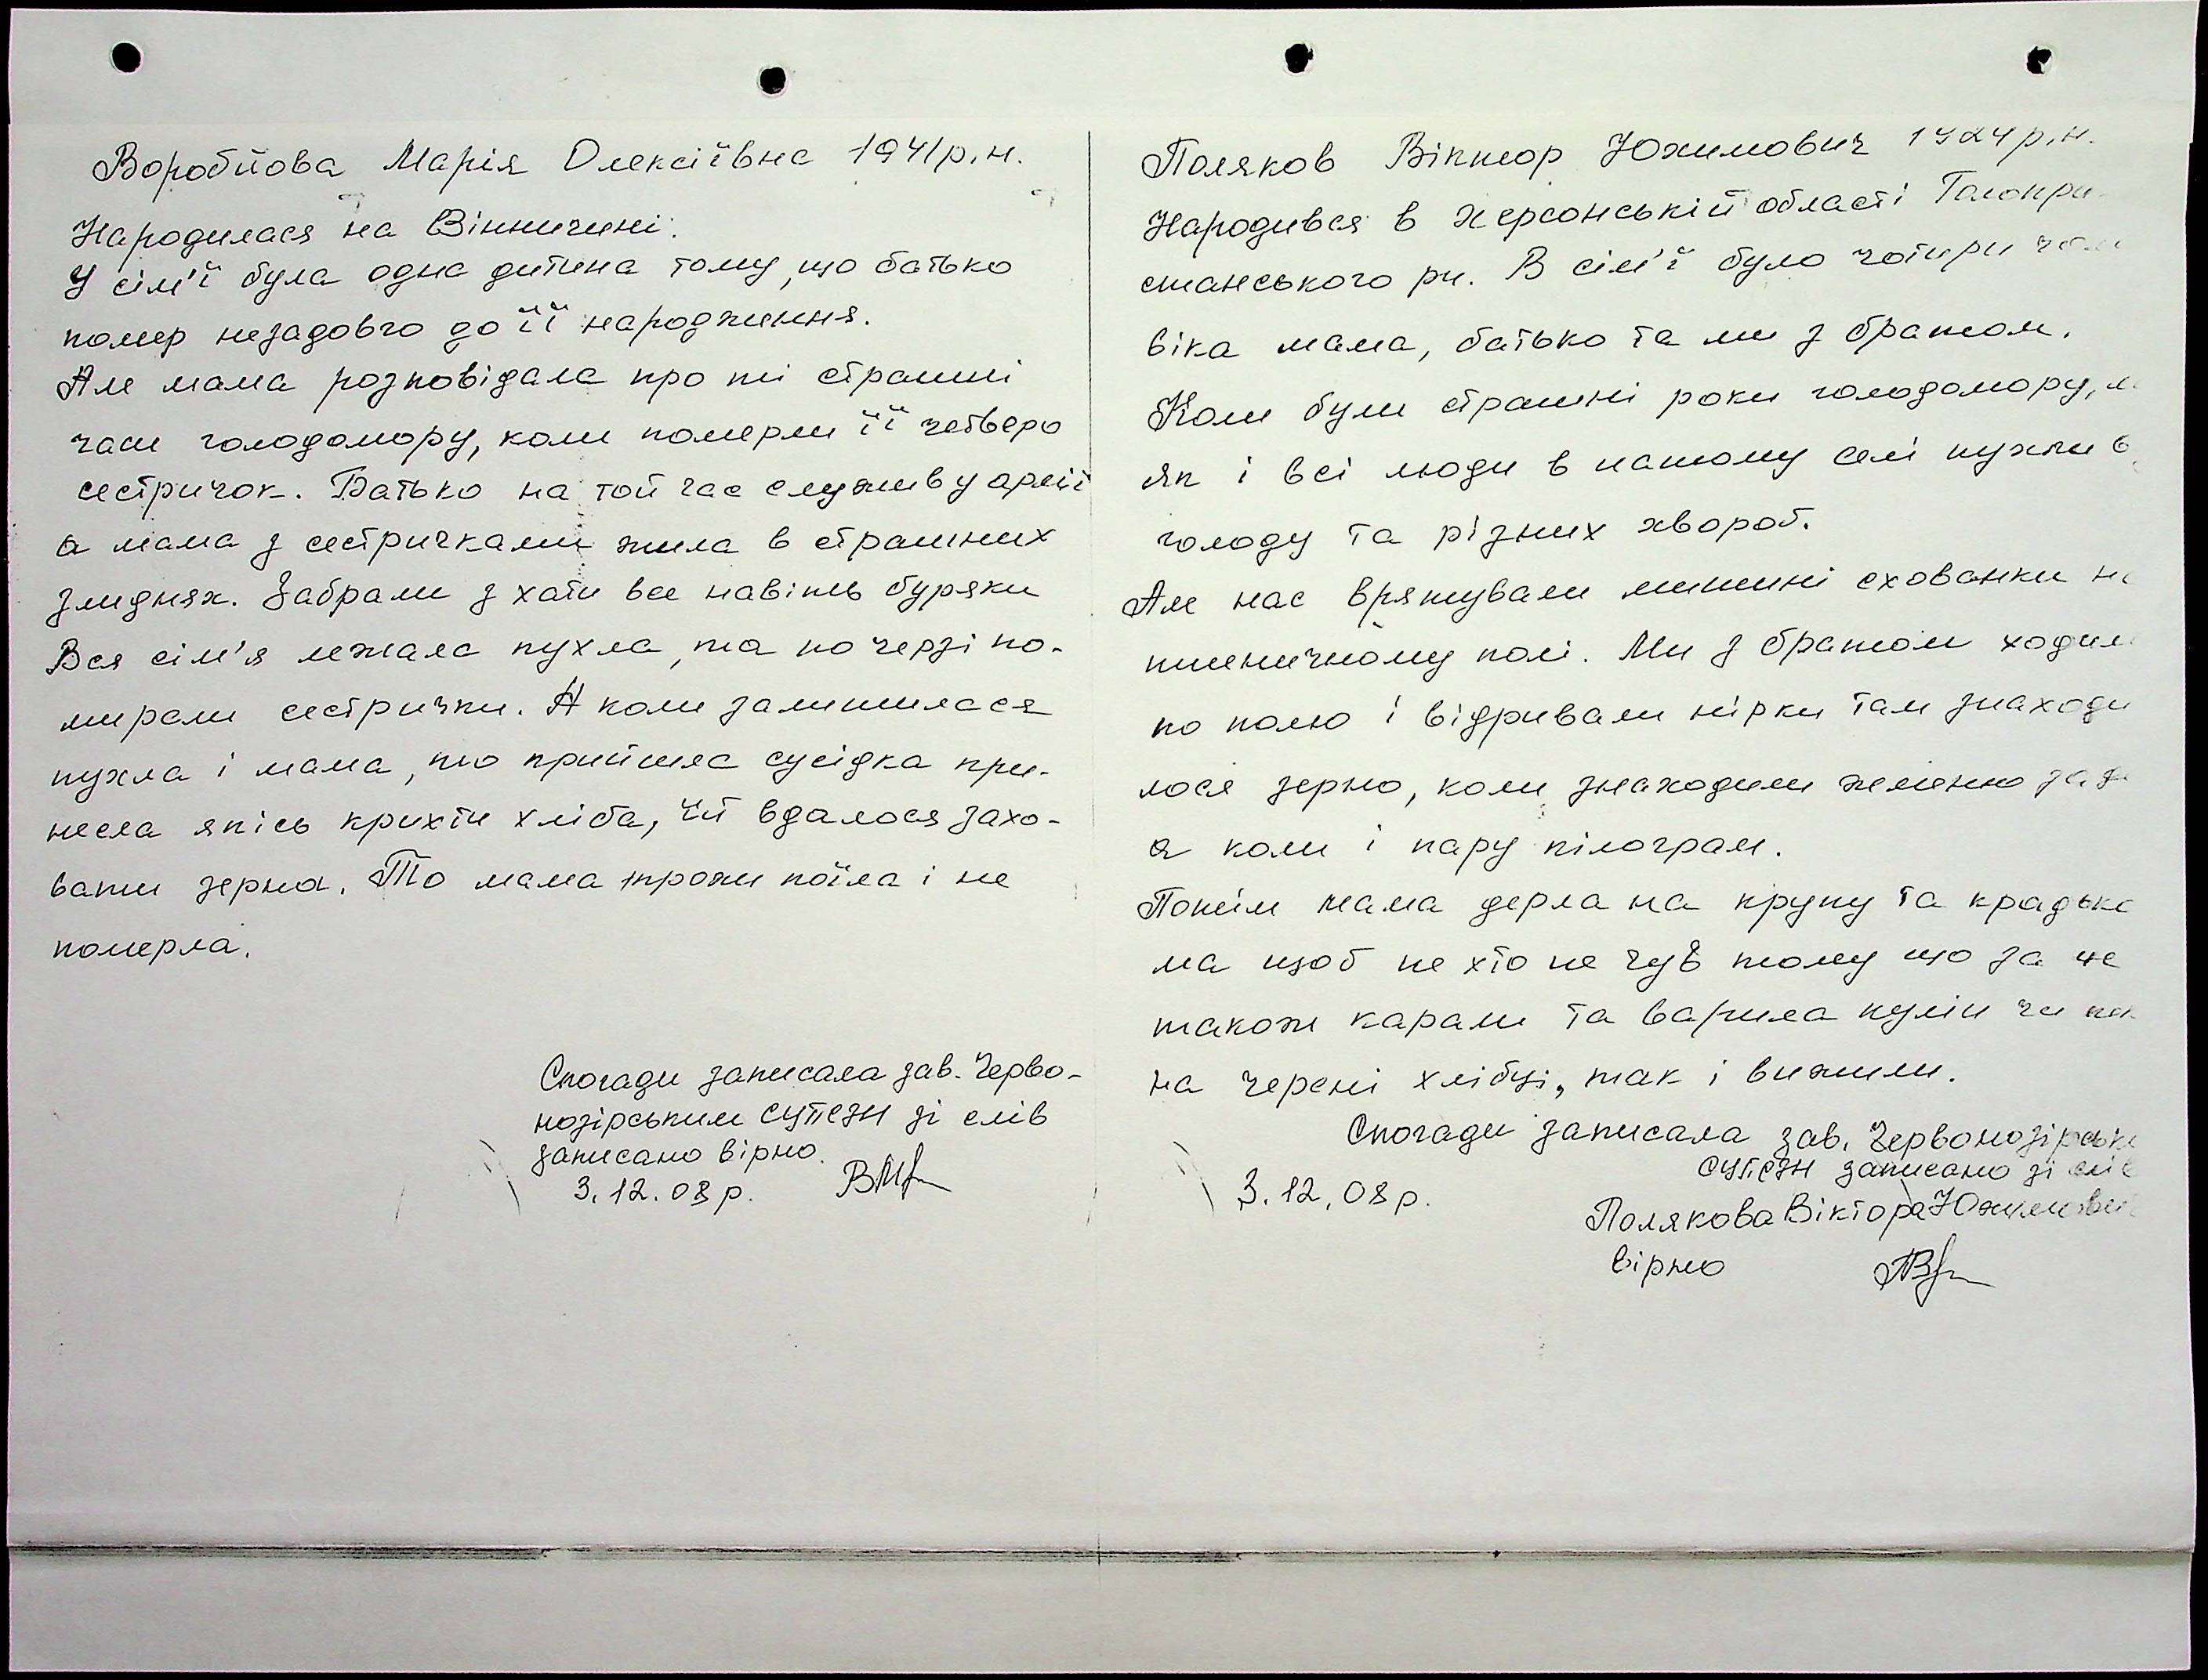 Воробйова Марія Олексіївна 1941р.н.
Народилася на Вінничині.
У сім'ї була одна дитина тому, що батько
помер незадовго до її народження.
Але мама розповідала про ті страшні
часи голодомору, коли померли її четверо
сестричок. Батько на той час служив у армії
а мама з сестричками жила в страшних
злиднях. Забрали з хати все навіть буряки
Вся сім'я лежала пухла, та по черзі по-
мирали сестрички. А коли залишилася
пухла і мама, то прийшла сусідка при-
несла якісь крихти хліба, їй вдалося захо-
вати зерна. То мама трохи поїла і не
померла.
Спогади записала зав. Черво-
нозірським СУПСЗН зі слів
записано вірно.
3.12.08р.
Поляков Віктор Юхимович 1924р.н.
Народився в Херсонській області Голопри
станського рн. В сім'ї було чотири чоло
віка мама, батько та ми з братом.
Коли були страшні роки голодомору, м
як і всі люди в нашому селі пухли в
голоду та різних хвороб.
Але нас врятували мишині схованки на
пшеничному полі. Ми з братом ходили
по полю і відривали нірки там знаходи
лося зерно, коли знаходили жменю
а коли і пару кілограм.
Потім мама дерла на крупу та крадько
ма щоб не хто не чув тому що за це
також карали та варила куліш чи
на черені хлібці, так і вижили.
Спогади записала зав. Червонозірськ
СУПСЗН записано зі слів
3.12.08р.
Полякова Віктора Юхимович
вірно